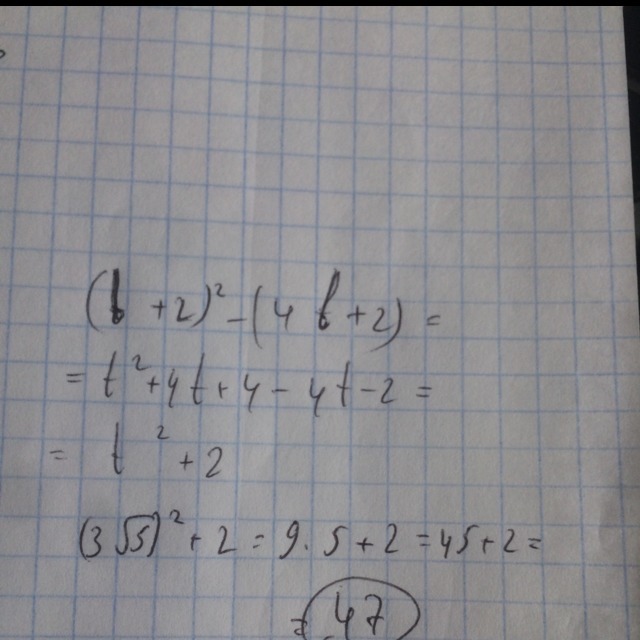 (t + 2)² - (4t + 2) =
= t² + 4t + 4 - 4t - 2 =
= t² + 2
(3√5)² + 2 = 9 . 5 + 2 = 45 + 2 =
= 47